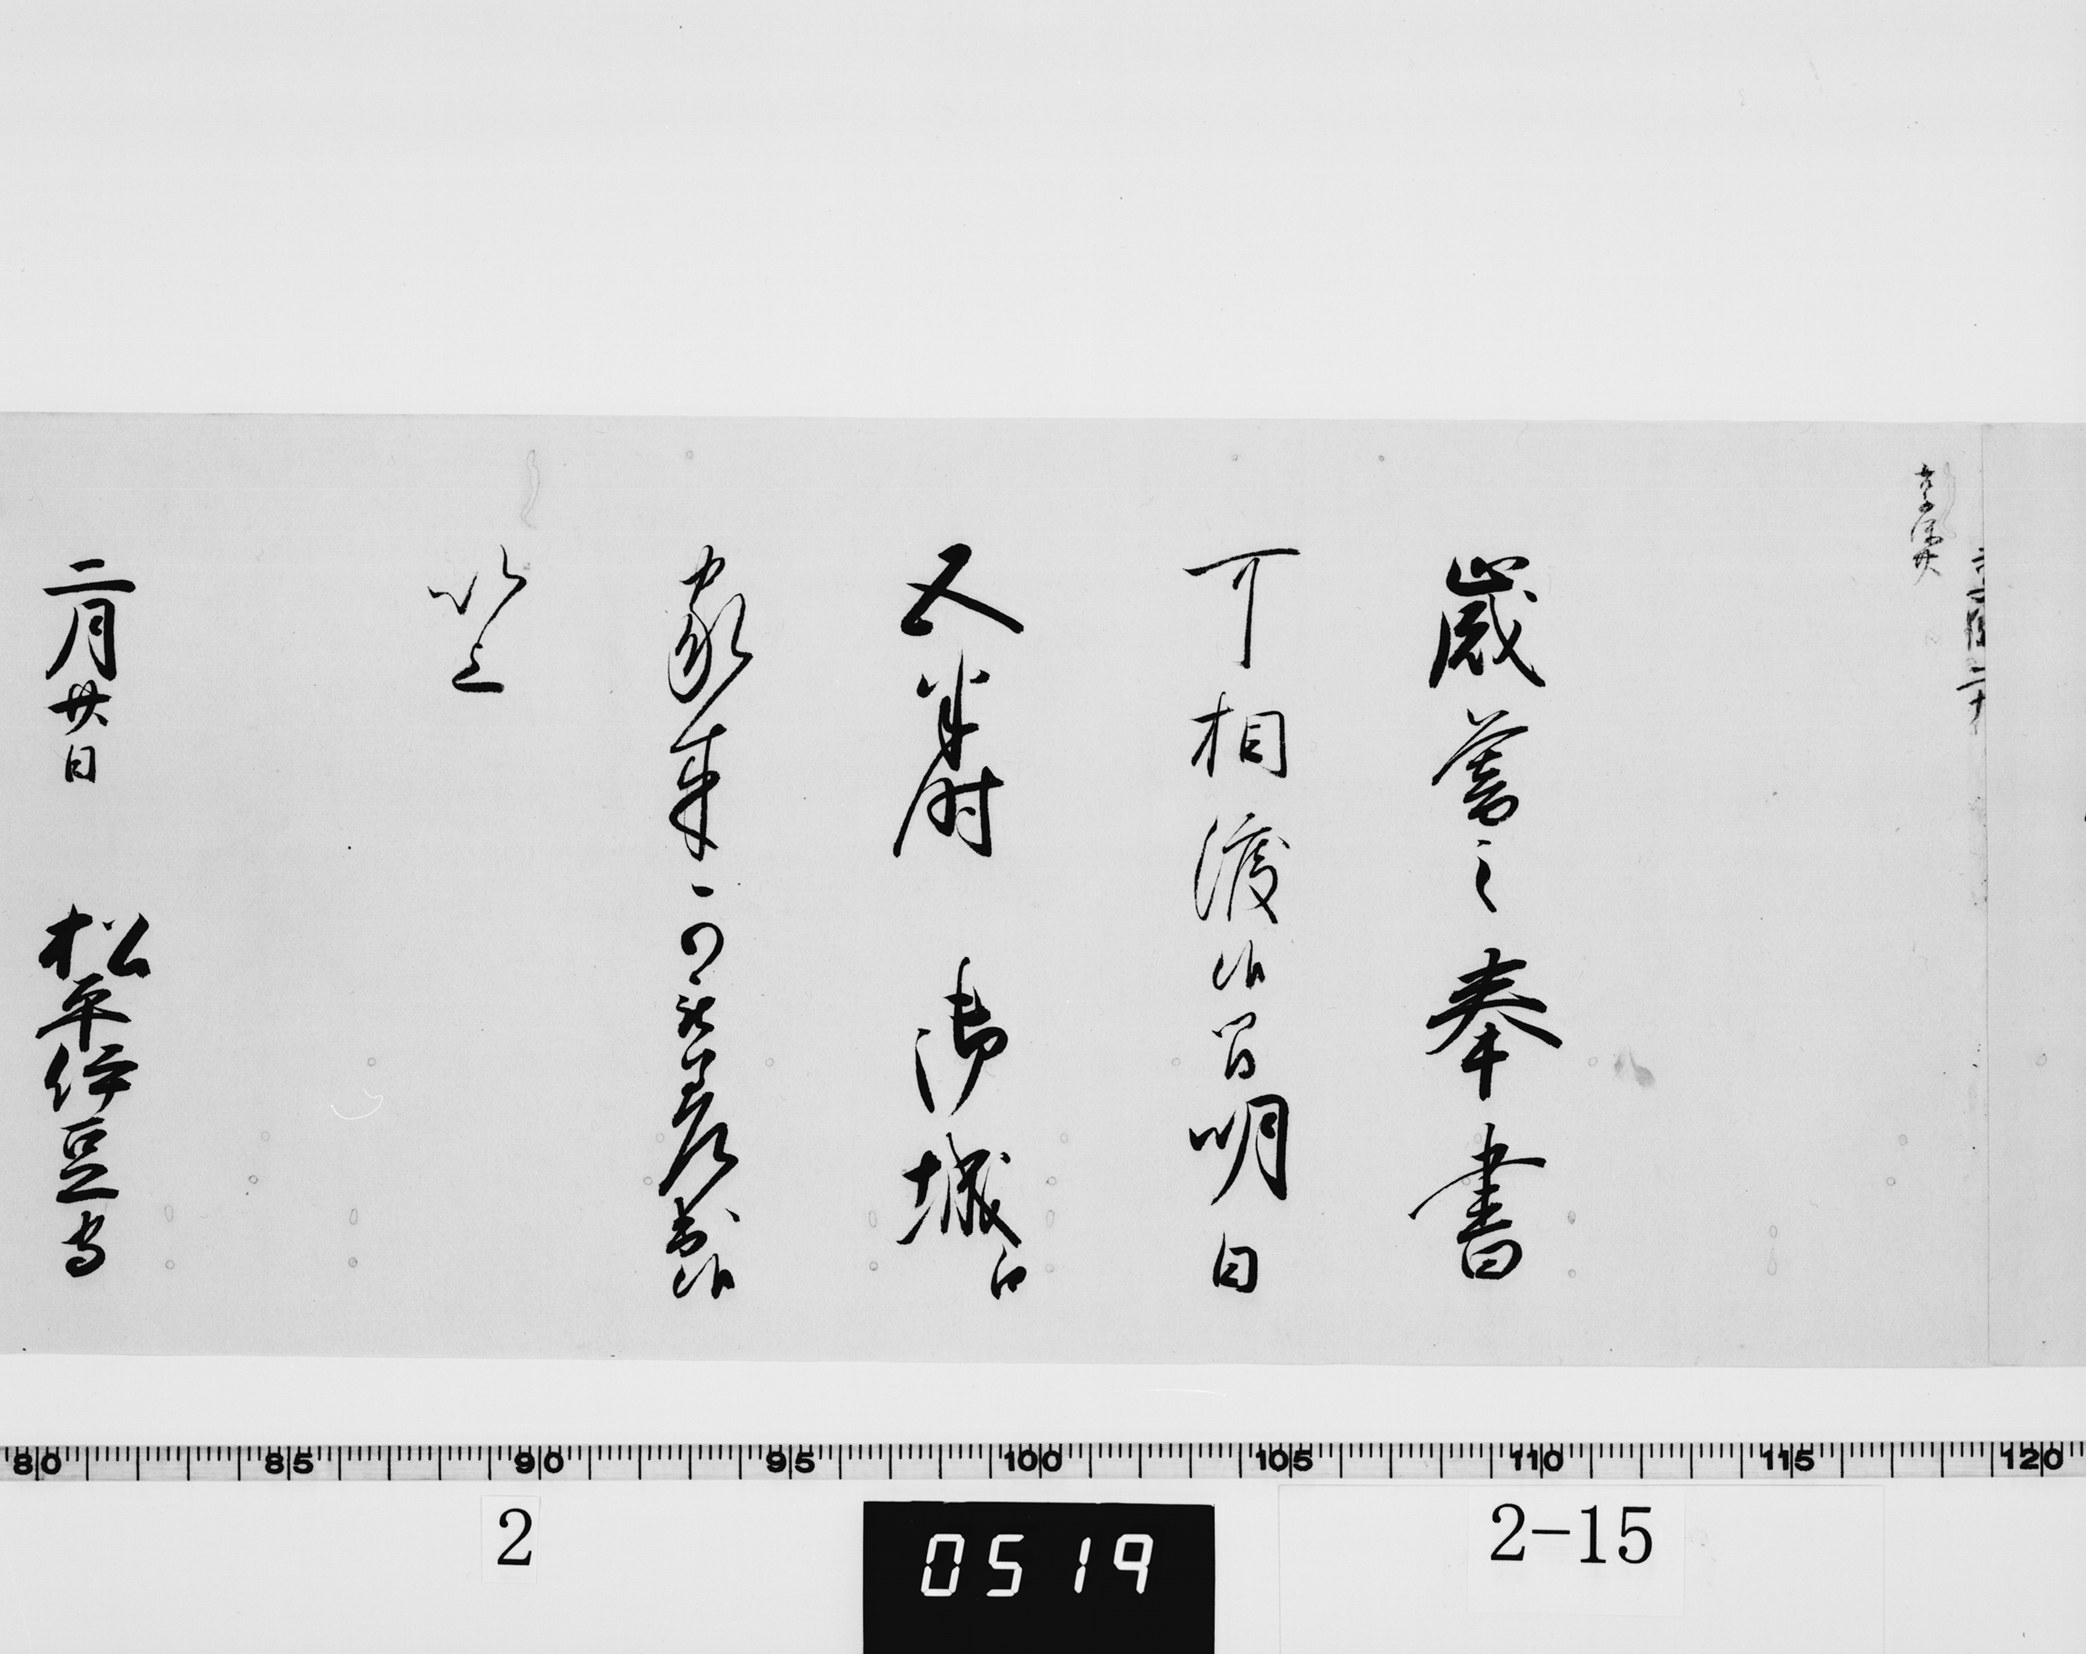 歳暮之奉書
可相渡候間明日
五半時 御城江
家来一可被差出候
以上
二月廿日 松平伊豆守
80 85 90 95 100 105 110 115 120
2
0519
2-15